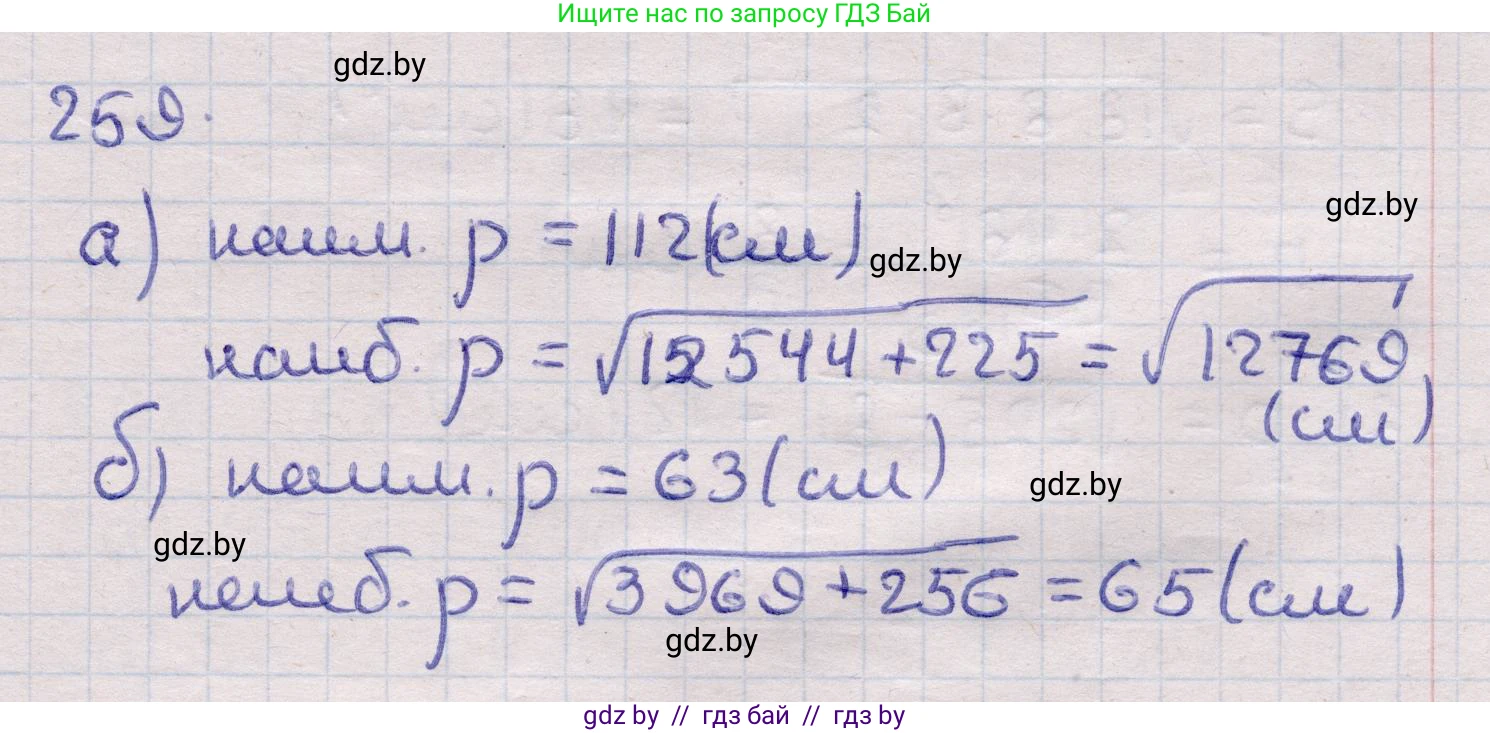 Ищите нас по запросу ГДЗ Бай
gdz.by
259.
gdz.by
а) наим. р = 112(см)
gdz.by
наиб. р = √12544 + 225 = √12769
(см)
б) наим. р = 63 (см)
gdz.by
gdz.by
наиб. р = √3969 + 256 = 65 (см)
gdz.by
gdz by // гдз бай // гдз by